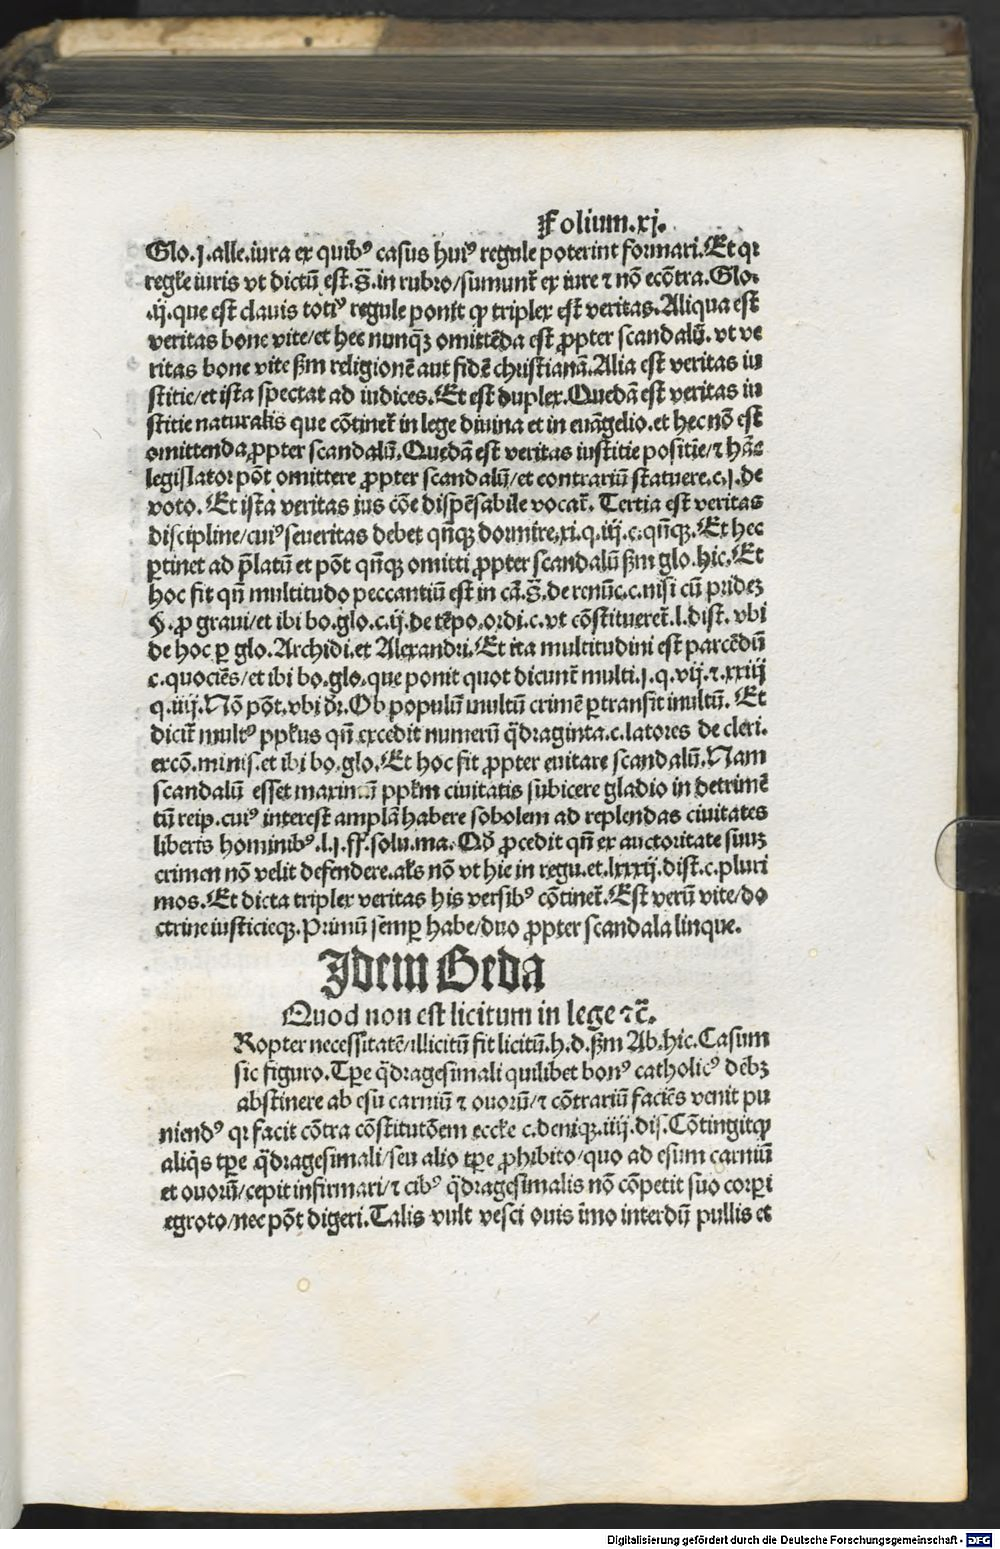 Folium.xj.
Glo.j.alle.iura ex quibꝰ casus huiꝰ regule poterint formari.Et qꝛ
regl̄e iuris vt dictū est.§̄.in rubro/sumunt᷑ ex iure ⁊ nō ecōtra.Glo.
.ij.que est clauis totiꝰ regule ponit ꝙ triplex est veritas.Aliqua est
veritas bone vite/et hec nunqꝫ omittēda est ꝓpter scandalū.vt ve
ritas bone vite ẜm religionē aut fidē christianā.Alia est veritas iu
stitie/et ista spectat ad iudices.Et est duplex.Quedā est veritas iu
stitie naturalis que cōtinet᷑ in lege diuina et in euāgelio.et hec nō est
omittenda ꝓpter scandalū.Quedā est veritas iustitie positie/⁊ hāc
legislator pōt omittere ꝓpter scandalū/et contrariū statuere.c.j.de
voto.Et ista veritas ius cōe dispēsabile vocat᷑.Tertia est veritas
discipline/cuiꝰ seueritas debet qn̄qꝫ dormire.xi.q.iij.c.qn̄qꝫ.Et hec
ꝑtinet ad p̄latū et pōt qn̄qꝫ omitti ꝓpter scandalū ẜm glo.hic.Et
hoc fit qn̄ multitudo peccantiū est in cā.§̄.de renūc.c.nisi cū pridez
§.ꝓ graui/et ibi bo.glo.c.ij.de tēpo.ordi.c.vt cōstitueret᷑.l.dist.vbi
de hoc ꝑ glo.Archidi.et Alexandri.Et ita multitudini est parcēdū
c.quociēs/et ibi bo.glo.que ponit quot dicunt᷑ multi.j.q.vij.⁊.xxiij
q.iiij.Nō pōt.vbi dr̄.Ob populū multū crimē ꝑtransit inultū.Et
dicit᷑ multꝰ ppl̄us qn̄ excedit numerū q̄draginta.c.latores de cleri.
excō.minis.et ibi bo.glo.Et hoc fit ꝓpter euitare scandalū.Nam
scandalū esset maximū ppl̄m ciuitatis subicere gladio in detrimē
tū reip.cuiꝰ interest amplā habere sobolem ad replendas ciuitates
liberis hominibꝰ.l.j.ff.solu.ma.Qđ ꝓcedit qn̄ ex auctoritate suuꝫ
crimen nō velit defendere.al̄s nō vt hic in regu.et.lxxxij.dist.c.pluri
mos.Et dicta triplex veritas his versibꝰ cōtinet᷑.Est verū vite/do
ctrine iusticieqꝫ.Primū semꝑ habe/duo ꝓpter scandala linque.
Idem Beda
Quod non est licitum in lege ⁊c̄.
Ropter necessitatē/illicitū fit licitū.h.d.ẜm Ab.hic.Casum
sic figuro.Tꝑe q̄dragesimali quilibet bonꝰ catholicꝰ dēbꝫ
abstinere ab esu carniū ⁊ ouorū/⁊ cōtrariū faciēs venit pu
niendꝰ qꝛ facit cōtra cōstitutōem eccl̄e c.deniqꝫ.iiij.dis.Cōtingitꝙ
aliq̄s tꝑe q̄dragesimali/seu alio tꝑe ꝓhibito/quo ad esum carniū
et ouorū/cepit infirmari/⁊ cibꝰ q̄dragesimalis nō cōpetit suo corꝑi
egroto/nec pōt digeri.Talis vult vesci ouis īmo interdū pullis et
Digitalisierung gefördert durch die Deutsche Forschungsgemeinschaft - DFG